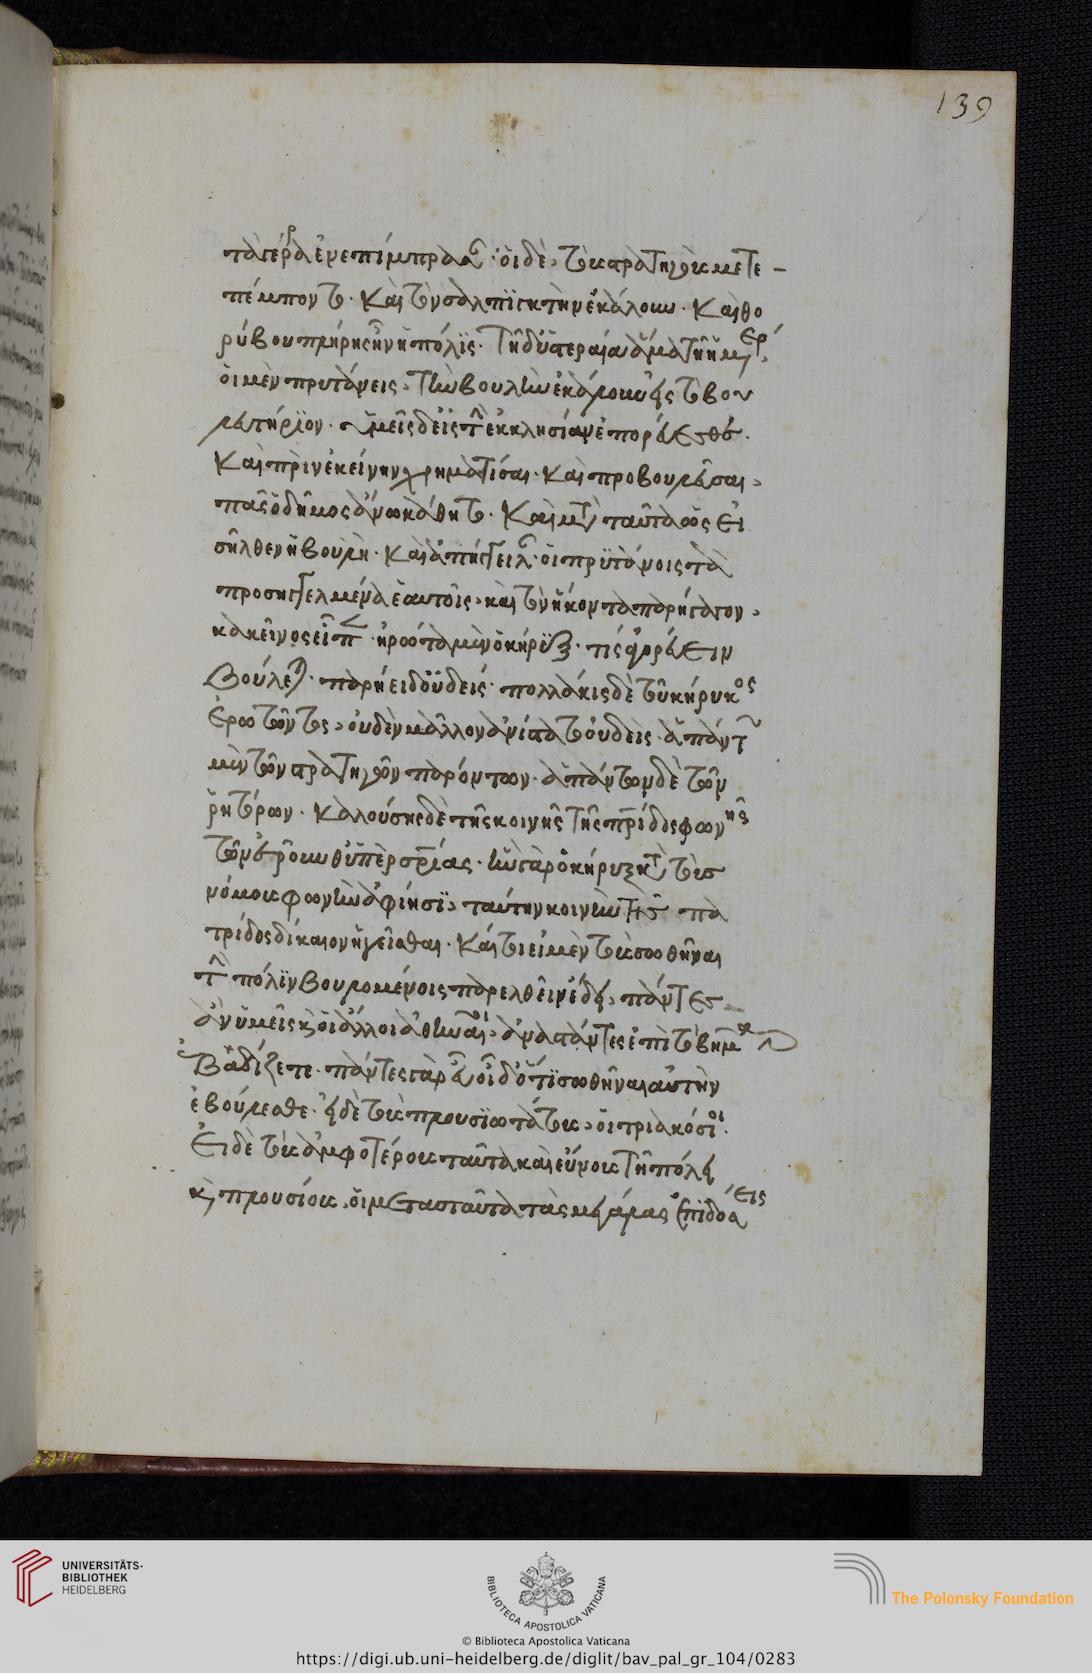 139
τὰ γέρρα ἐνεπίμπρασαν· οἱ δὲ, τοὺς στρατηγοὺς μετε-
πέμποντο· καὶ τὸν σαλπιγκτὴν ἐκάλουν· καὶ θο
ρύβου πλήρης ἦν ἡ πόλις· τῇ δ' ὑστεραίᾳ ἅμα τῇ ἡμέρᾳ,
οἱ μὲν πρυτάνεις, τὴν βουλὴν ἐκάλουν εἰς τὸ βου
λευτήριον· ὑμεῖς δ' εἰς τὴν ἐκκλησίαν ἐπορεύεσθε·
καὶ πρὶν ἐκείνην χρηματίσαι· καὶ προβουλεῦσαι,
πᾶς ὁ δῆμος ἄνω κάθητο· καὶ μετὰ ταῦτα ὡς εἰ
σῆλθεν ἡ βουλὴ· καὶ ἀπήγγειλαν οἱ πρυτάνεις τὰ
προσηγγελμένα ἑαυτοῖς, καὶ τὸν ἥκοντα παρήγαγον,
κἀκεῖνος εἶπεν· ἠρώτα μὲν ὁ κήρυξ· τίς ἀγορεύειν
βούλεται· παρήει δ' οὐδείς· πολλάκις δὲ τοῦ κήρυκος
ἐρωτῶντος, οὐδὲν μᾶλλον ἀνίστατο οὐδεὶς· ἁπάντων
μὲν τῶν στρατηγῶν παρόντων· ἁπάντων δὲ τῶν
ῥητόρων· καλούσης δὲ τῆς κοινῆς τῆς πατρίδος φωνῆς
τὸν ἐροῦνθ' ὑπὲρ σωτηρίας· ἣν γὰρ ὁ κήρυξ κατὰ τοὺς
νόμους φωνὴν ἀφίησι, ταύτην κοινὴν τῆς πα
τρίδος δίκαιον ἡγεῖσθαι· καίτοι εἰ μὲν τοὺς σωθῆναι
τὴν πόλιν βουλομένους παρελθεῖν ἔδει, πάντες
ἂν ὑμεῖς καὶ οἱ ἄλλοι ἀθηναῖοι, ἀναστάντες ἐπὶ τὸ βῆμα
ἐβαδίζετε· πάντες γὰρ εὖ οἶδ' ὅτι σωθῆναι αὐτὴν
ἐβούλεσθε· εἰ δὲ τοὺς πλουσιωτάτους, οἱ τριακόσιοι·
εἰ δὲ τοὺς ἀμφότερους ταῦτα καὶ εὔνους τῇ πόλει
καὶ πλουσίους, οἱ μετὰ ταῦτα τὰς μεγάλας ἐπιδόσεις
UNIVERSITÄTS-
BIBLIOTHEK
HEIDELBERG
BIBLIOTECA APOSTOLICA VATICANA
The Polonsky Foundation
© Biblioteca Apostolica Vaticana
https://digi.ub.uni-heidelberg.de/diglit/bav_pal_gr_104/0283